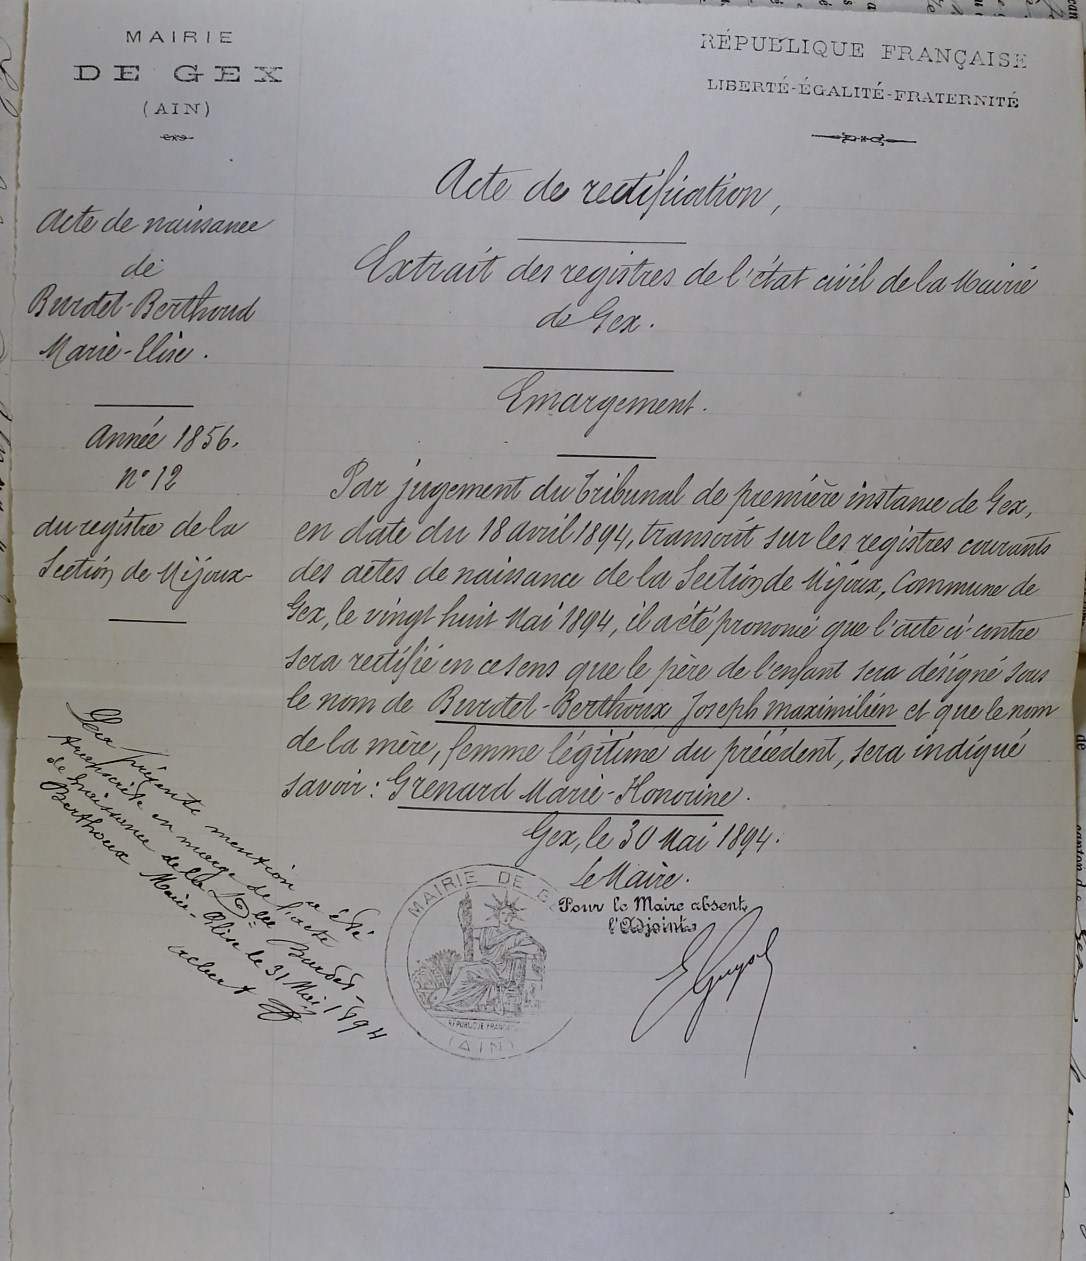 MAIRIE
DE GEX
(AIN)
RÉPUBLIQUE FRANÇAISE
LIBERTÉ-ÉGALITÉ-FRATERNITÉ
Acte de naissance
de
Burdet-Berthoud
Marie-Elise.
Année 1856.
n° 12
du registre de la
Section de Mijoux
Acte de rectification,
Extrait des registres de l'état civil de la Mairie
de Gex.
Emargement.
Par jugement du Tribunal de première instance de Gex,
en date du 18 avril 1894, transcrit sur les registres courants
des actes de naissance de la Section de Mijoux, Commune de
Gex, le vingt huit Mai 1894, il a été prononcé que l'acte ci-contre
sera rectifié en ce sens que le père de l'enfant sera désigné sous
le nom de Burdet-Berthoux Joseph Maximilien et que le nom
de la mère, femme légitime du précédent, sera indiqué
savoir : Grenard Marie-Honorine.
Gex, le 30 Mai 1894.
Le Maire.
Pour le Maire absent,
l'Adjoint
MAIRIE DE GE
RÉPUBLIQUE FRANÇAISE
(AIN)
La présente mention a été
transcrite en marge de l'acte
de naissance de la Dlle Burdet-
Berthoux Marie-Elise le 31 Mai 1894